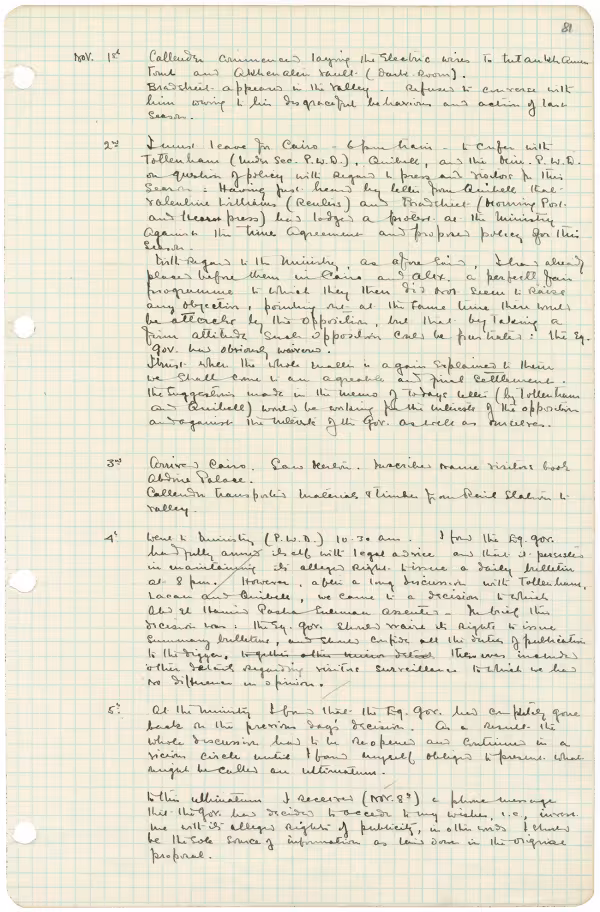 81
Nov. 1st Callender commenced laying the Electric wires to Tut.ankh.Amen
Tomb and Akhenaten vault (Dark-Room).
Bradstreet appeared in the Valley. Refused to converse with
him owing to his disgraceful behaviour and action of last
season.
2nd I must leave for Cairo - 6 pm train - to confer with
Tottenham (Under Sec. P.W.D.), Quibell, and the P.W.D.
on question of policy with regard to press and visitors for this
Season: Having just heard by letter from Quibell that
Valentine Williams (Reuters) and Bradstreet (Morning Post
and press) had lodged a protest at the Ministry
against the Times Agreement and proposed policy for this
season.
With regard to the Ministry, as afore said, I had already
placed before them in Cairo and Alex. a perfectly fair
programme to which they then did not seem to raise
any objection, pointing out at the same time there would
be attacks by the opposition, but that by taking a
firm attitude such opposition could be frustrated: the Eg.
Gov. had obviously waivered.
I trust when the whole matter is again explained to them
we shall come to an agreeable and final settlement.
The suggestions made in the memo of todays letter (by Tottenham
and Quibell) would be working for the interests of the opposition
and against the interests of the Gov. as well as ourselves.
3rd Arrived Cairo. Saw Inscribed name visitors book
Abdine Palace.
Callender transported materials & timber from Rail Station to
Valley.
4th Went to Ministry (P.W.D.) 10.30 am. I found the Eg. Gov.
had fully armed itself with legal advice and that it persisted
in maintaining its alleged right to issue a daily bulletin
at 8 pm. However, after a long discussion with Tottenham,
Lacau and Quibell, we came to a decision to which
Abd El Hamid Pasha Suleman assented. In brief this
decision was: the Eg. Gov. should waive its rights to issue
summary bulletins, and should confide all the duties of publication
to the digger, together other minor detail there was included
other details regarding visitors surveillance to which we had
no difference in opinion.
5th At the Ministry I found that the Eg. Gov. had completely gone
back on the previous day's decision. As a result the
whole discussion had to be reopened and continued in a
vicious circle until I found myself obliged to present what
might be called an ultimatum.
To this ultimatum I received (Nov. 8th) a phone message
that the Gov. had decided to accede to my wishes, i.e., invest
me with its alleged rights of publicity, in other words I should
be the sole source of information as laid down in the original
proposal.